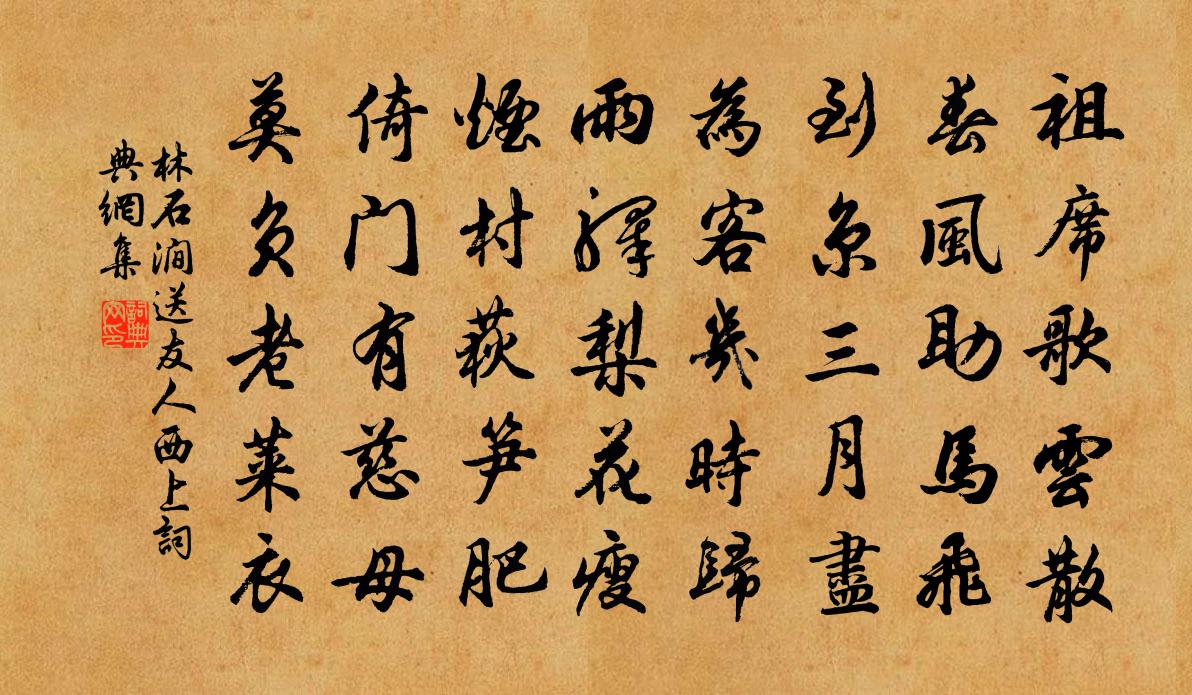 祖席歌雲散
春風助馬飛
到京三月盡
為客幾時歸
雨驛梨花瘦
煙村荻笋肥
倚門有慈母
莫負老萊衣
林石澗送友人西上詞
典網集
詞典
网印